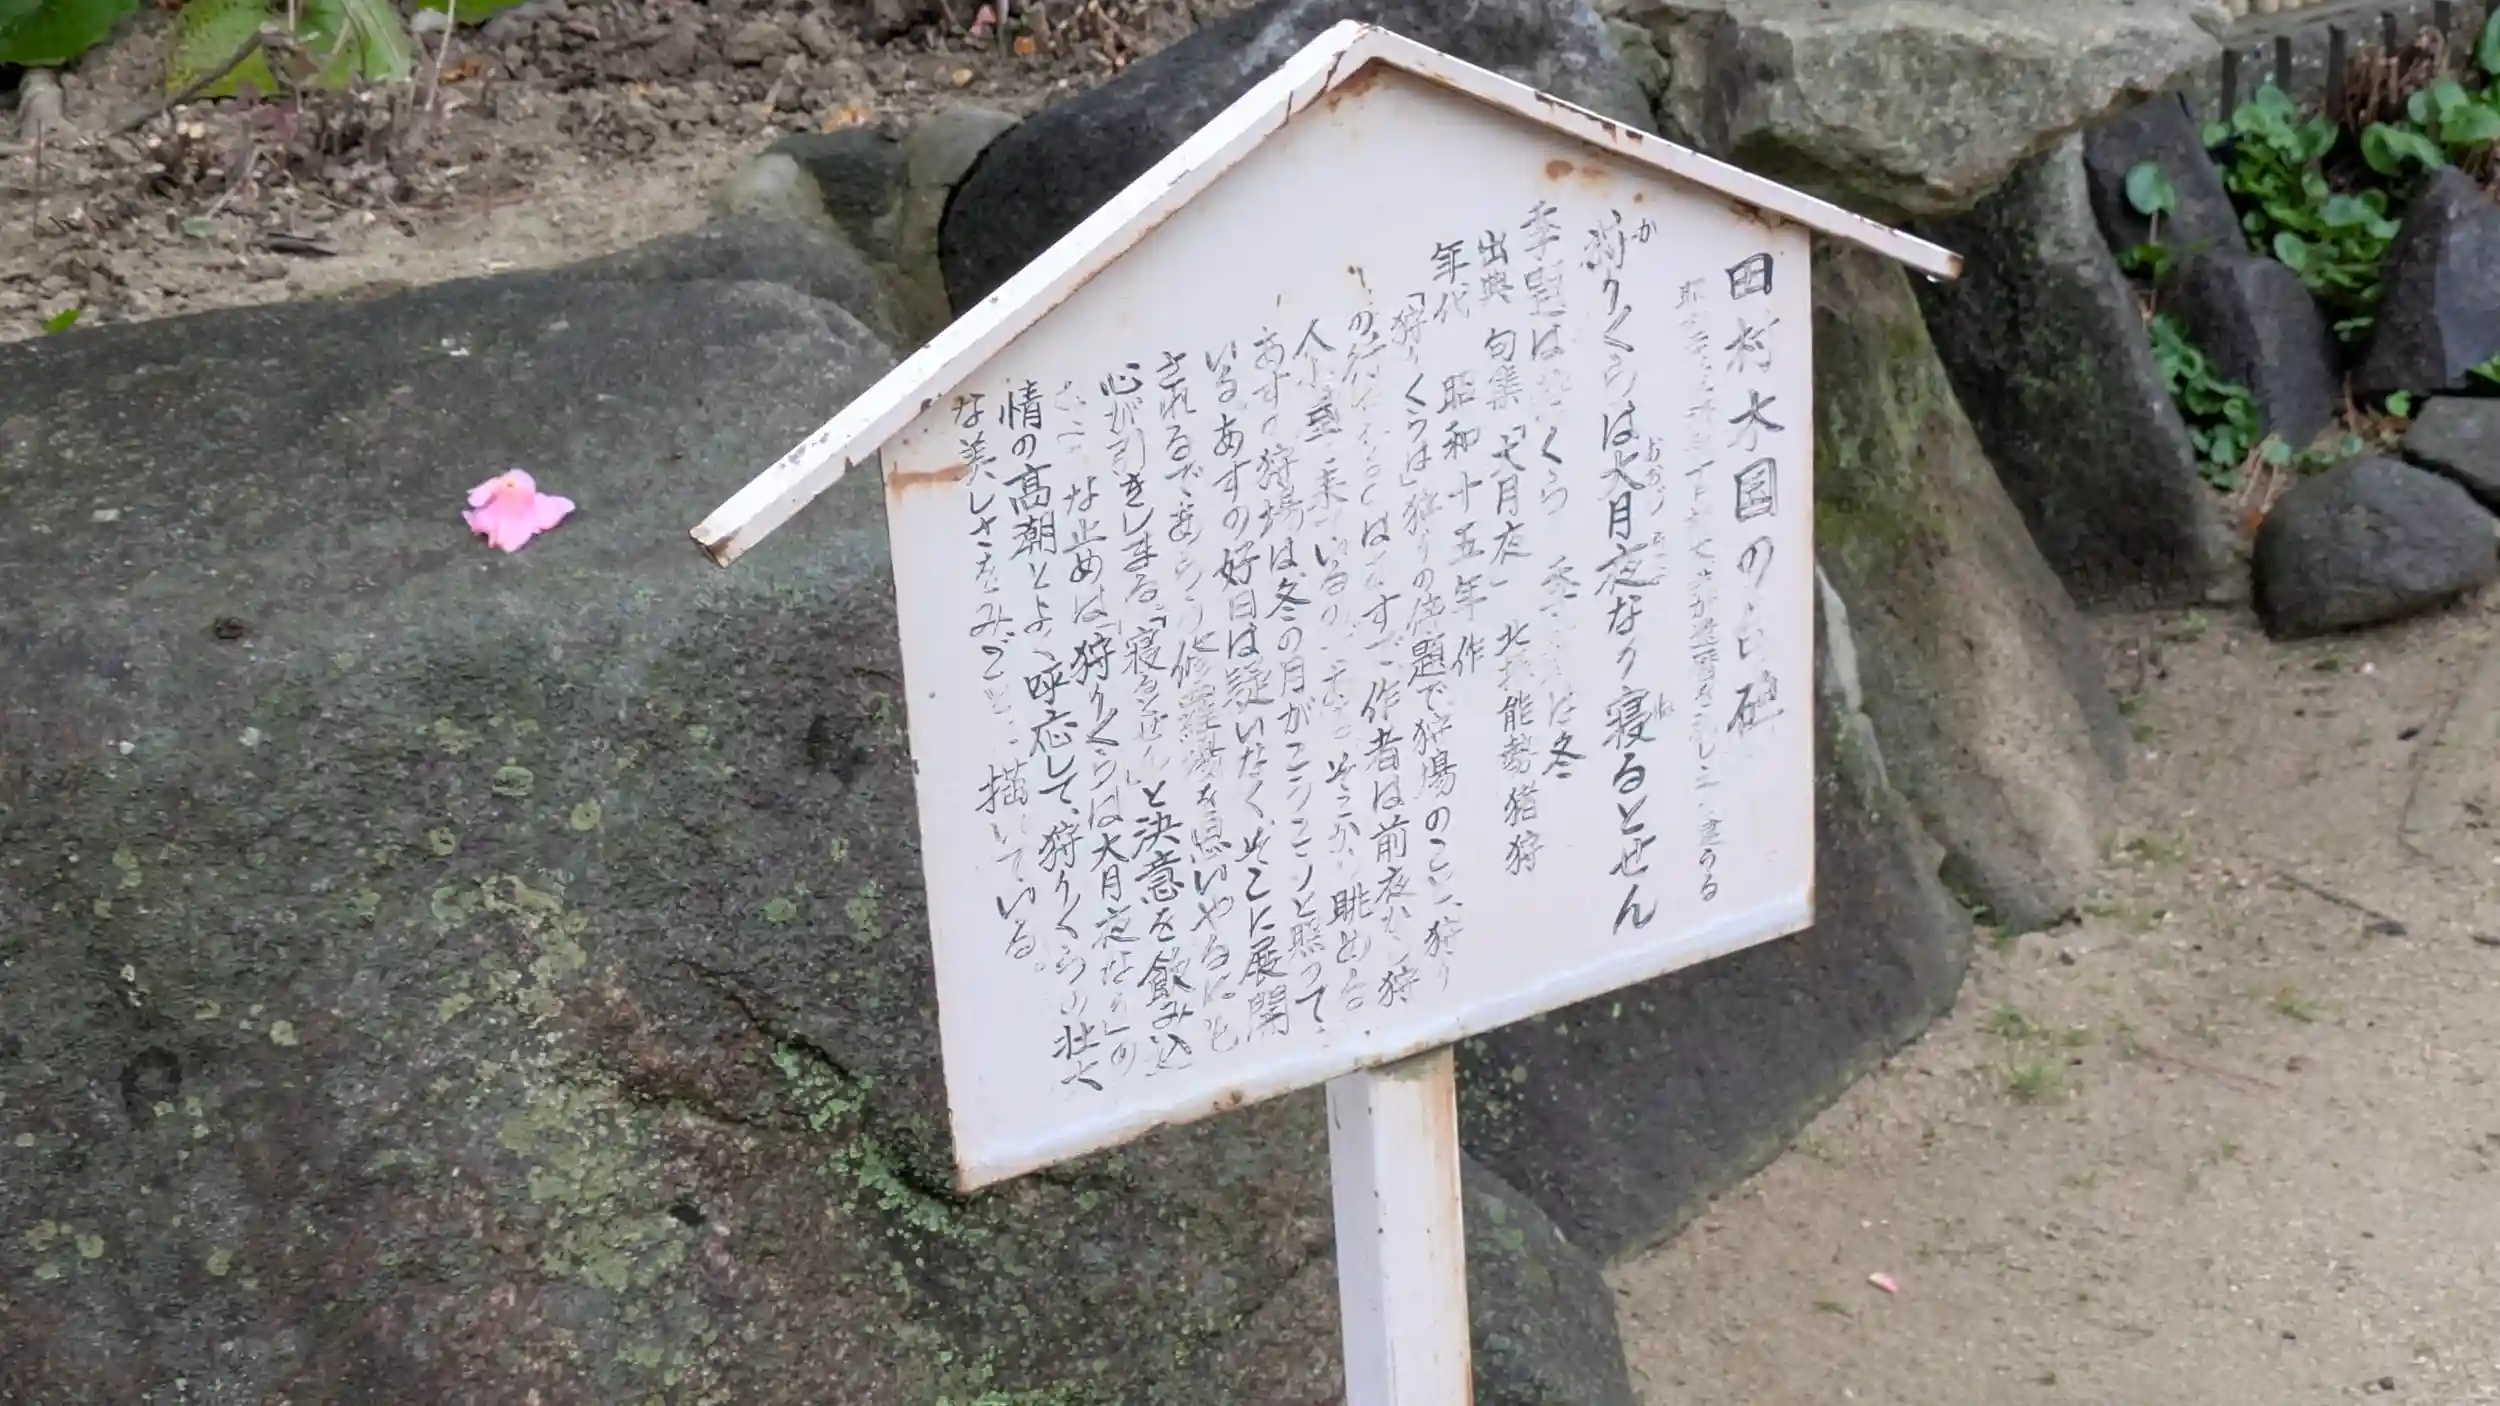 田村木国の句碑
建うる
狩りくらは大月夜なり寝るとせん
か
おおづ
ね
季題は狩くら 季は冬
出典 句集「大月夜」 北摂能勢猪狩
年代 昭和十五年作
「狩りくらは」狩りの傍題で狩場のこと、狩り
の行はれる はです。作者は前夜から狩
人小屋に来ているので 眺める
あすの狩場は冬の月がこうこうと照って
いる。あすの好日は疑いなく、そこに展開
されるであらう修羅場を思いやるにも
心が引きしまる。「寝るとせん」と決意を飲み込
な止めは「狩りくらは大月夜なり」の
情の高潮とよく呼応して、狩りくらの壮大
な美しさをみごとに描いている。